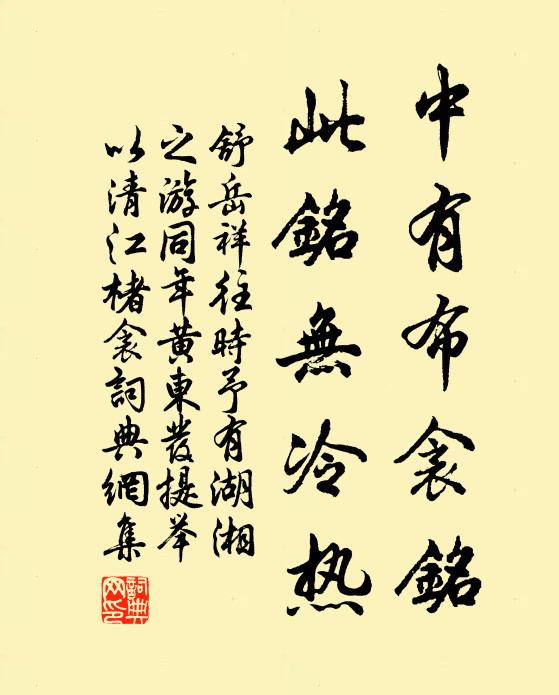 中有布衾銘
此銘無冷热
舒岳祥往時予有湖湘
之游同年黄東發提举
以清江楮衾詞典網集